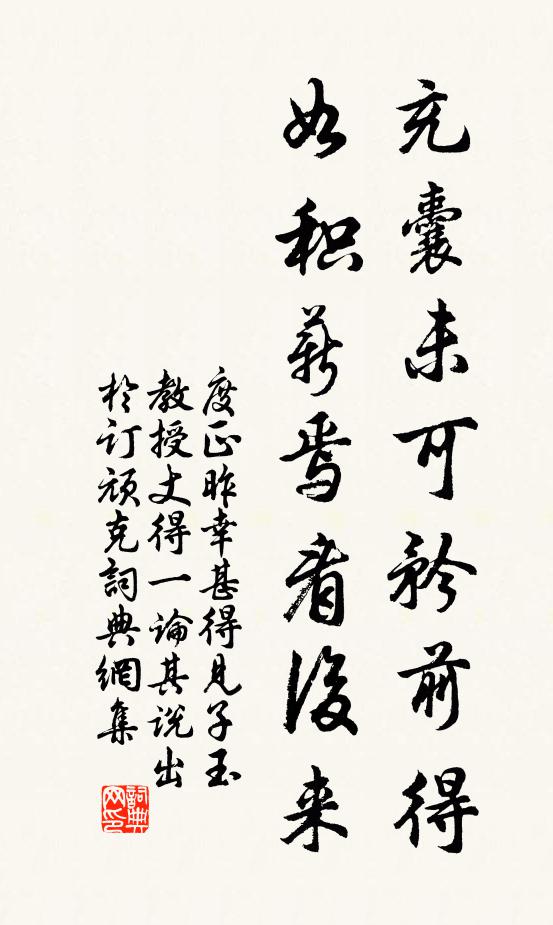 充囊未可矜前得
如积薪焉看后来
度正昨幸甚得见子玉
教授丈得一论其说出
於订顽克詞典網集
詞典网印